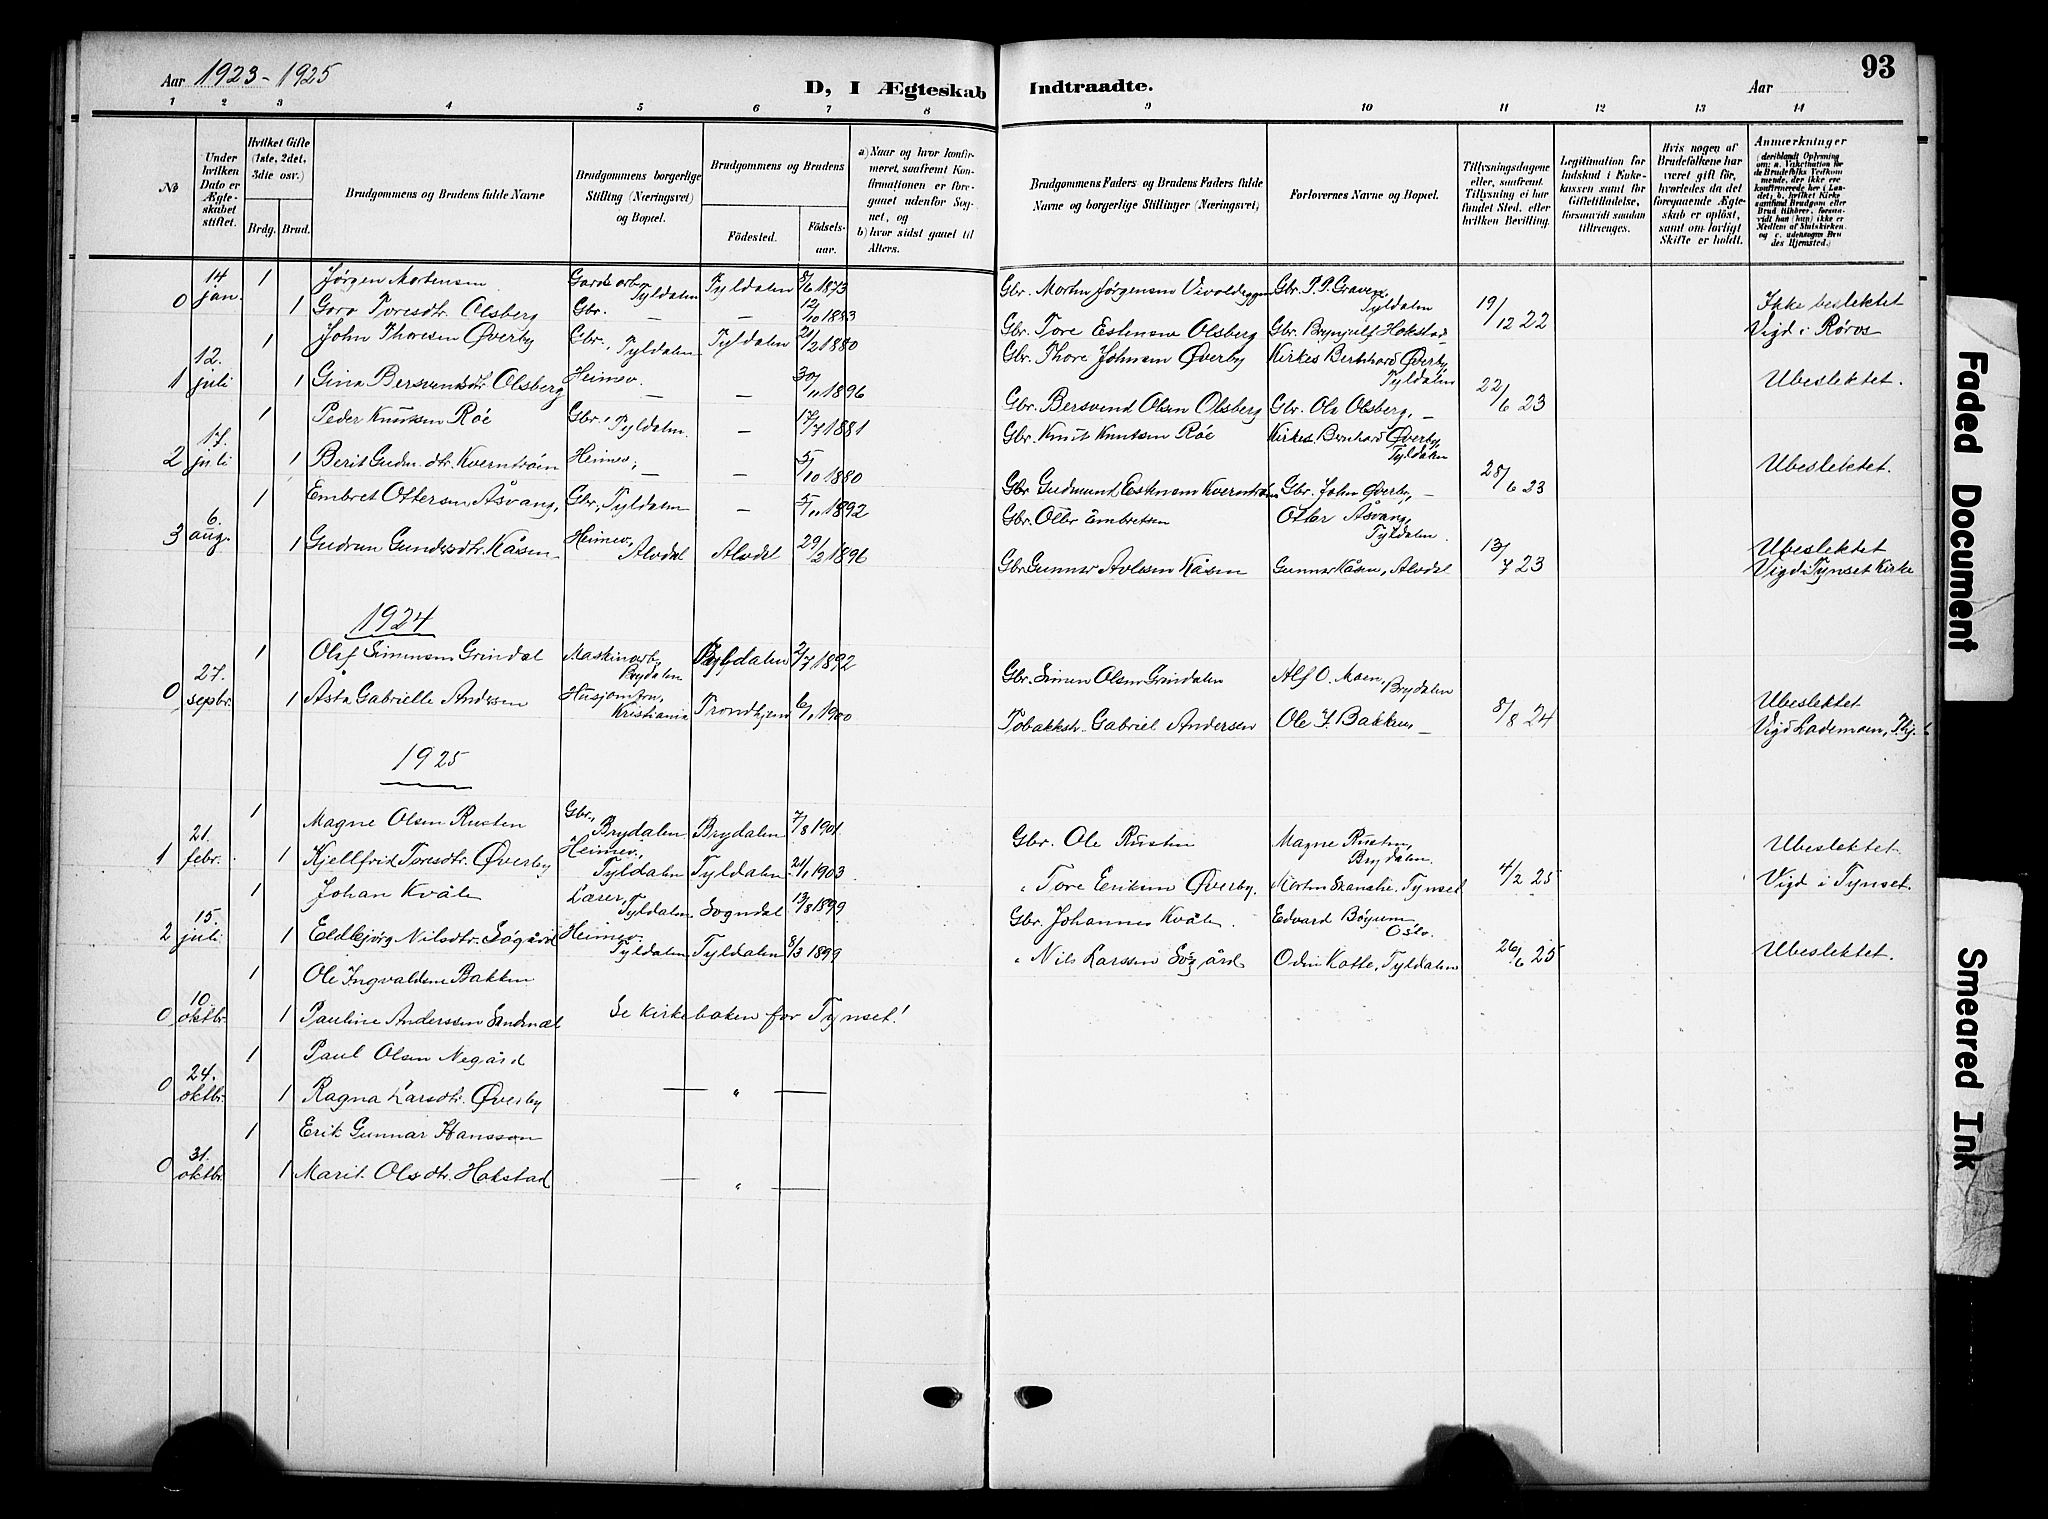 Aar 1923-1925
D, I Ægteskab Indtraadte.
Aar
93
1 2 3 4 5 6 7 8 9 10 11 12 13 14
No
Under hvilken Dato er Ægteskabet stiftet.
Hvilket Gifte (1ste, 2det, 3dte osv.)
Brdg. Brud.
Brudgommens og Brudens fulde Navne
Brudgommens borgerlige Stilling (Næringsvei) og Bopæl.
Brudgommens og Brudens
Födested.
Födselsaar.
a) Naar og hvor konfirmeret, saafremt Konfirmationen er foregaaet udenfor Sognet, og
b) hvor sidst gaaet til Alters.
Brudgommens Faders og Brudens Faders fulde Navne og borgerlige Stillinger (Næringsvei)
Forlovernes Navne og Bopæl.
Tillysningsdagene eller, saafremt Tillysning ei har fundet Sted, efter hvilken Bevilling.
Legitimation for Indskud i Enkekassen samt for Giftetilladelse, forsaavidt saadan tiltrænges.
Hvis nogen af Brudefolkene har været gift før, hvorledes da det foregaaende Ægteskab er oplöst, samt om lovligt Skifte er holdt.
Anmærkninger
0 14 jan. 1 Jørgen Mortensen Gardsarb, Tyldalen Tyldalen 8/6 1873 Gbr. Morten Jørgensen Gbr. P. P. Graven Tyldalen
1 Goro Toresdtr. Olsberg Gbr. — — 12/10 1883 Gbr. Tore Estensen Olsberg Gbr. Brynjulf Hokstad 19/12 22 Ikke beslektet Vigd i Røros
1 12. juli 1 John Thoresen Øverby Gbr., Tyldalen Tyldalen 21/2 1880 Gbr. Thore Johnsen Øverby Kirkes. Bernhard Øverby, Tyldalen
1 Gina Bersvendsdtr. Olsberg Heimev. — — 30/11 1896 Gbr. Bersvend Olsen Olsberg Gbr. Ola Olsberg, — 22/6 23 Ubeslektet.
2 17. juli 1 Peder Knutsen Røe Gbr., Tyldalen. — 17/7 1881 Gbr. Knut Knutsen Røe Kirkes. Bernhard Øverby, Tyldalen
1 Berit Gudm.dtr. Kverntrøen Heimev, — — 5/10 1880 Gbr Gudmund Estensen Kverntrøen Gbr. John Øverby, — 28/6 23 Ubeslektet.
3 6. aug. 1 Embret Ottersen Åsvang, Gbr., Tyldalen — 5/11 1892 Gbr. Otter Embretsen Otter Åsvang, Tyldalen.
1 Gudrun Gundersdtr. Kåsen Heimev, Alvdal Alvdal 29/2 1896 Gbr Gunner Avlesen Kåsen Gunner Kåsen, Alvdal 13/7 23 Ubeslektet Vigd i Tynset Kirke
1924
0 27. septbr. 1 Olaf Simensen Grindal Maskinarb, Brydalen Tyldalen 2/7 1892 Gbr. Simen Olsen Grindalen Alf O. Moen, Brydalen
1 Asta Gabrielle Andersen Kristiania Trondhjem 6/1 1900 Tobakksh. Gabriel Andersen Ole J. Bakken — 8/8 24 Ubeslektet Vigd Lademoen, Thj.
1925
1 21. febr. 1 Magne Olsen Rusten Gbr, Brydalen Brydalen 7/8 1901. Gbr. Ole Rusten Magne Rusten, Brydalen.
1 Kjellfrid Toresdtr. Øverby Heimev, Tyldalen Tyldalen 21/1 1903 " Tore Eriksen Øverby. Morten Skanske, Tynset 4/2 25 Ubeslektet. Vigd i Tynset.
2 15. juli 1 Johan Kvåle Lærer, Tyldalen Sogndal 13/8 1899 Gbr. Johannes Kvåle Edvard Bøyum Oslo.
1 Eldbjörg Nilsdtr. Søgård Heimev. Tyldalen. Tyldalen 8/3 1899 " Nils Larssen Søgård Odin Kotte, Tyldalen 26/6 25 Ubeslektet.
0 10 oktbr. 1 Ole Ingvaldsen Bakken
1 Pauline Anderssen Sandmæl Se kirkeboken for Tynset!
0 24. oktbr. 1 Paul Olsen Negård
1 Ragna Larsdtr. Øverby — " —
0 31. oktbr. 1 Erik Gunnar Hansson
1 Marit Olsdtr. Hokstad — " —
Faded Document
Smeared Ink